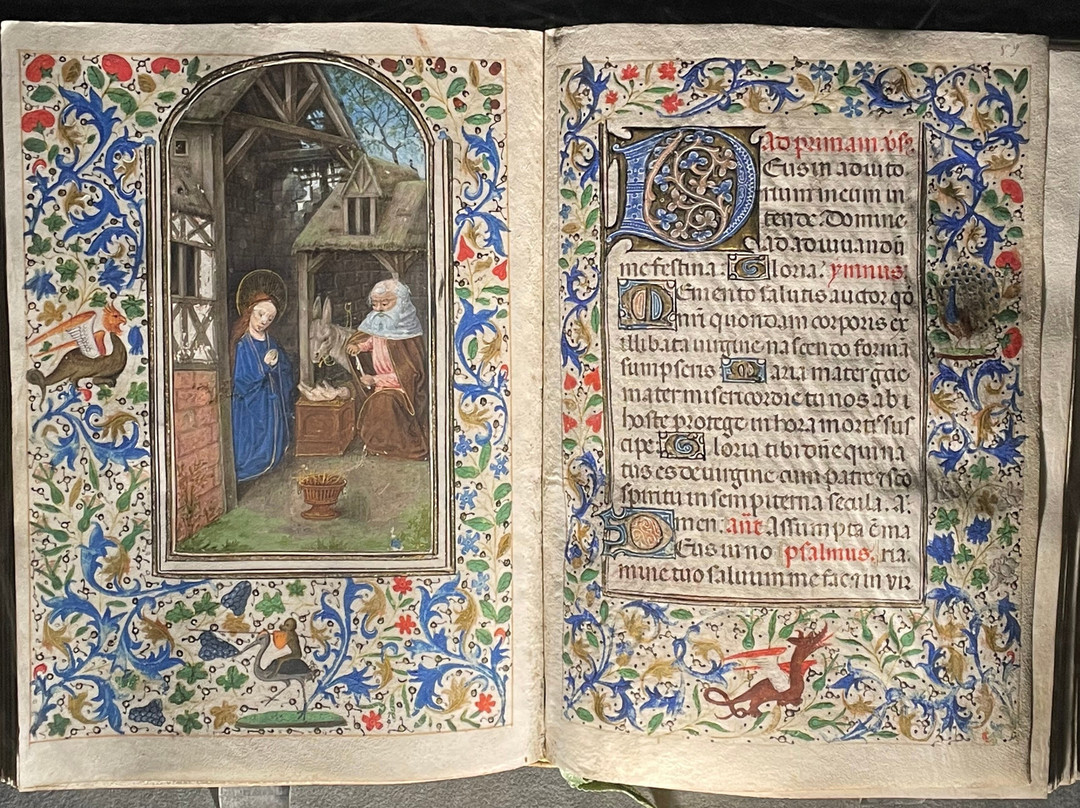 59
Ad primam. v̄s̄.
Deus in adiuto
rium meum in
tende Domine
ad adiuuandū
me festina. Gloria. ymnus.
Memento salutis auctor qd
nrī quondam corporis ex
illibata uirgine nascendo formā
sumpseris Maria mater grāe
mater misericordie tu nos ab
hoste protege in hora mortis sus
cipe Gloria tibi dn̄e qui na
tus es de uirgine cum patre scō
spiritu in sempiterna secula. A
men. an̄e. Assumpta ē ma
Deus in no psalmus. ria.
mine tuo saluum me fac et in vir